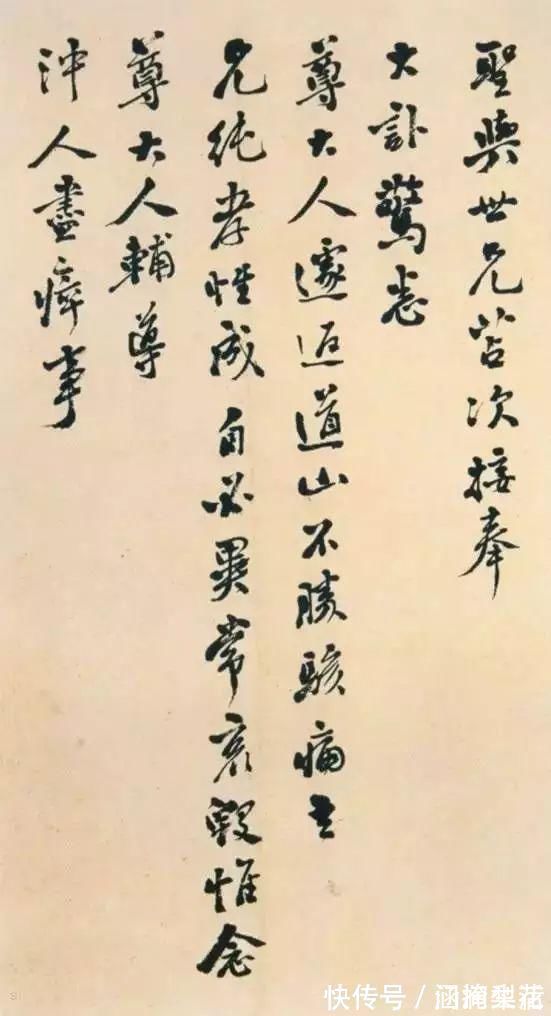 聖與世兄苫次接奉
大訃驚悉
尊大人遽返道山不勝駭痛吾
兄純孝性成自必異常哀毀惟念
尊大人輔導
沖人盡瘁事
快传号／涵梨花